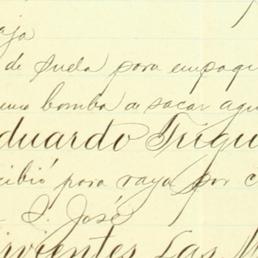 aja
de suela para empaqu
una bomba a sacar agu
duardo Trigu
cibió para raya por c
S. José
rvientes Las M